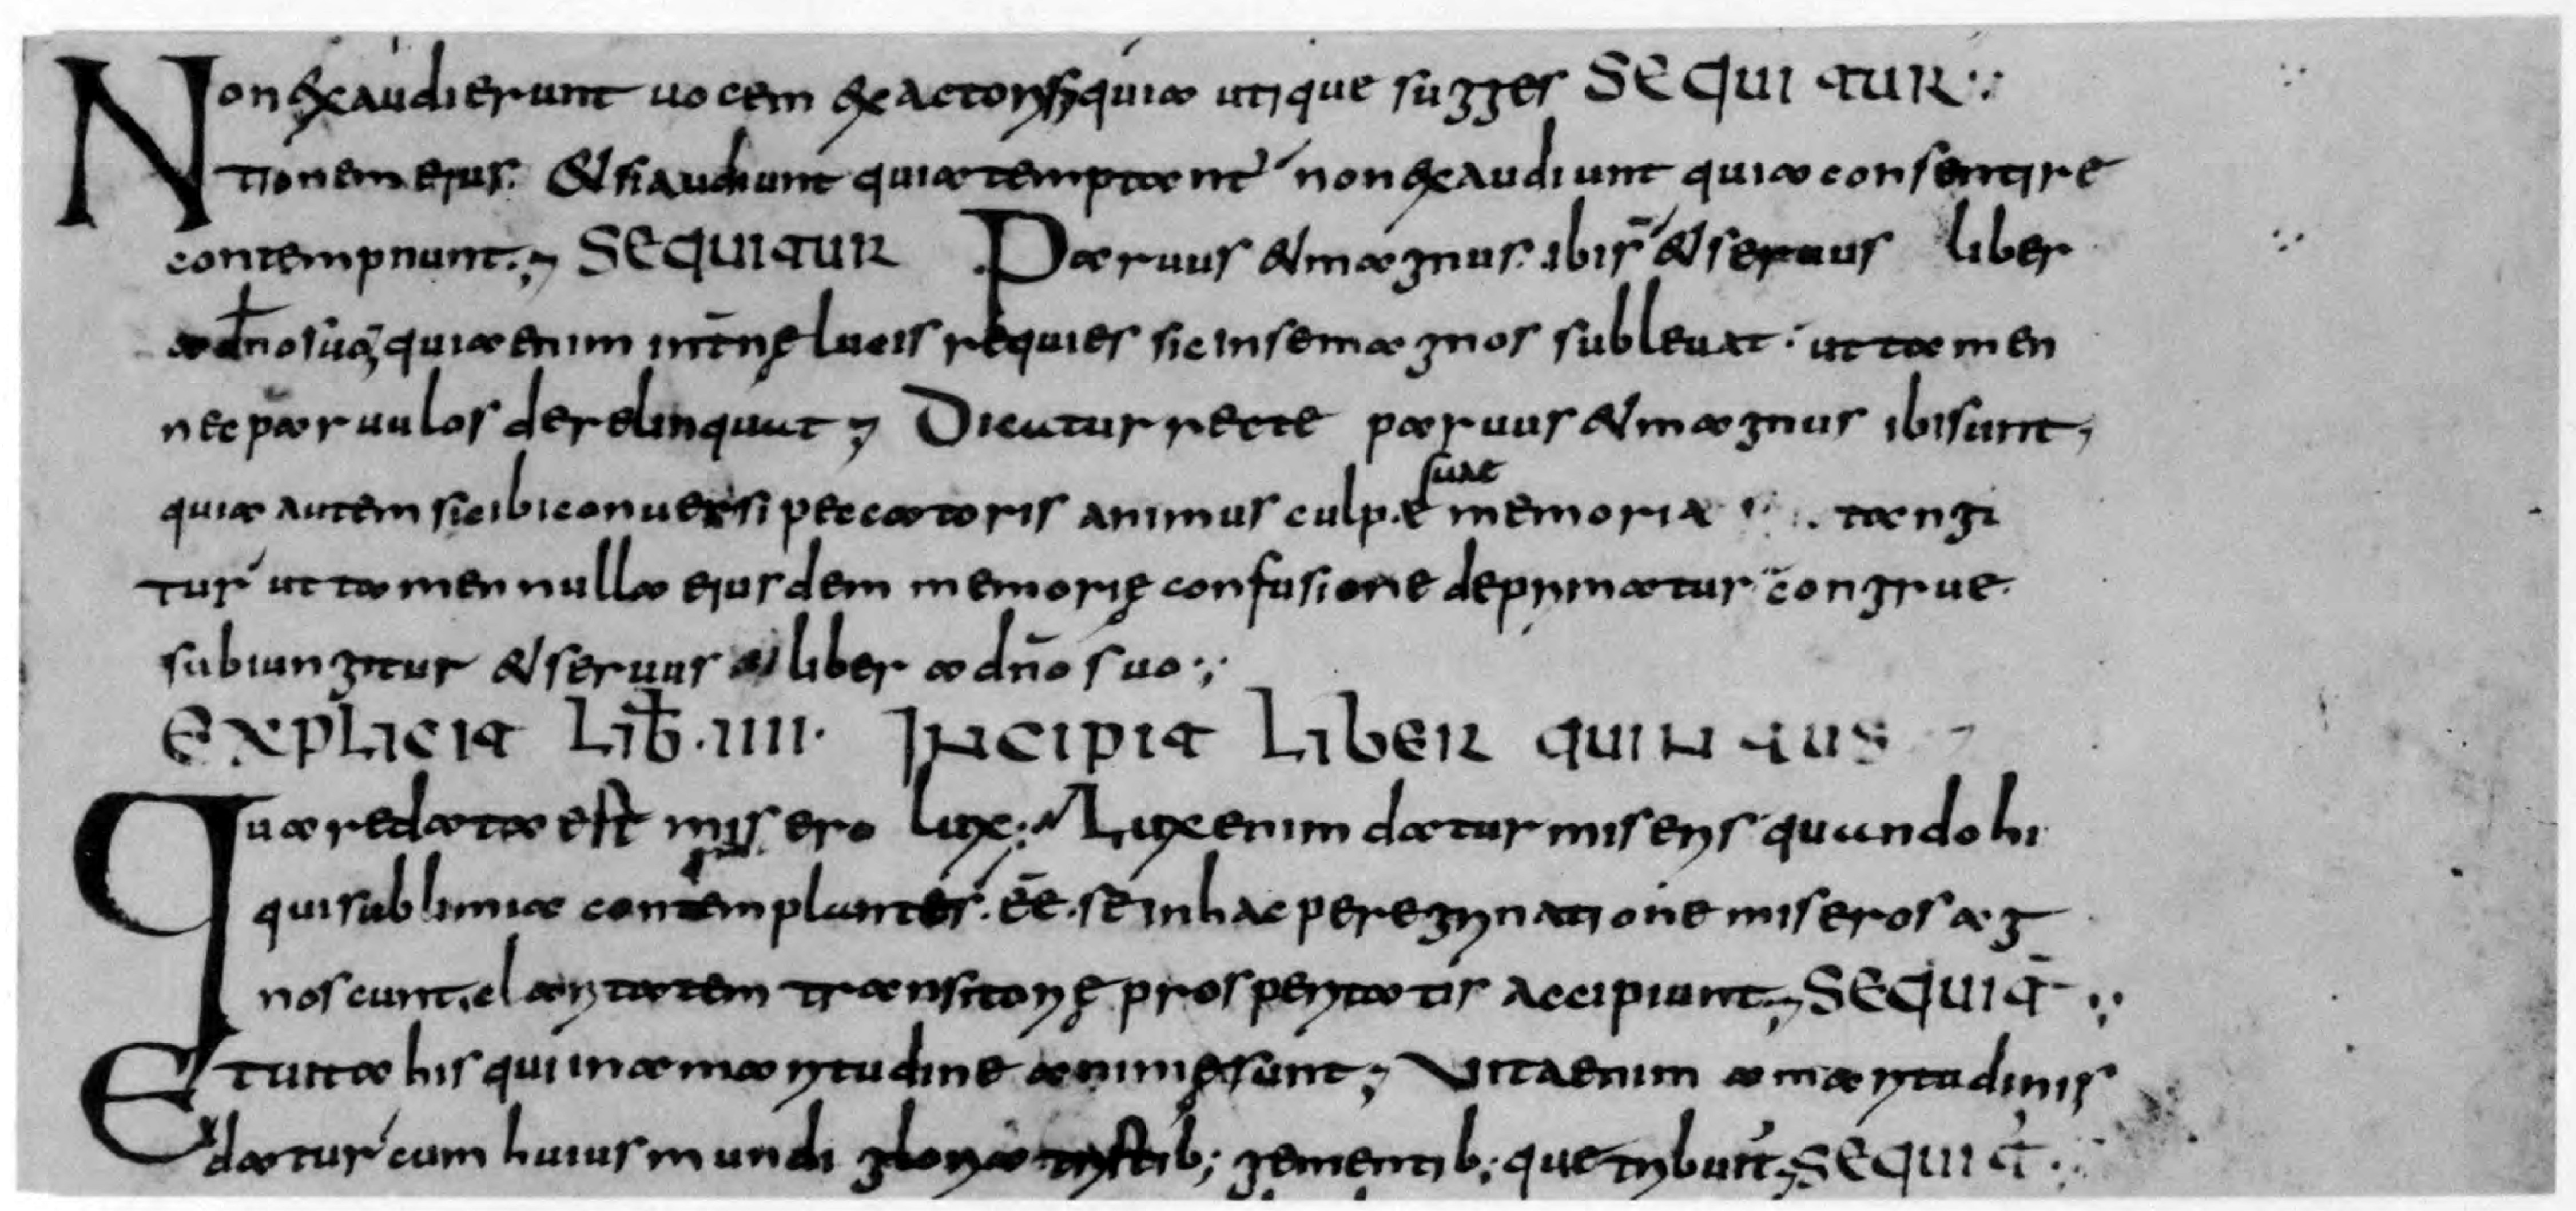 Non exaudierunt uocem exactoris; quia utique sugges SEQUITUR
tionem ejus. Et si audiunt quia temptant' non exaudiunt quia consentire
contempnunt; SEQUITUR Paruus et magnus. ibi s̄ et seruus liber
a dno suo; quia enim int̄ne lucis requies sic in se magnos subleuat. ut tamen
nec paruulos derelinquat; Dicatur recte paruus et magnus ibi sunt,
quia autem sic ibi conuersi peccatoris animus culpe suae memoria tangi
tur ut tamen nulla ejusdem memorię confusione deprimatur congrue
subiungitur et seruus liber a dn̄o suo;
EXPLICIT LIB̄. IIII. INCIPIT LIBER QUINTUS
Quare data est misero lux. Lux enim datur miseris quando hi
qui sublimia contemplantes. ēē. se in hac peregrinatione miseros ag
noscunt, claritatem transitorię prosperitatis accipiunt; SEQUIT̄
Et uita his qui in amaritudine animę sunt; Vita enim amaritudinis
datur cum huius mundi gloria tristib; gementib; que tribuit̄; SEQUIT̄